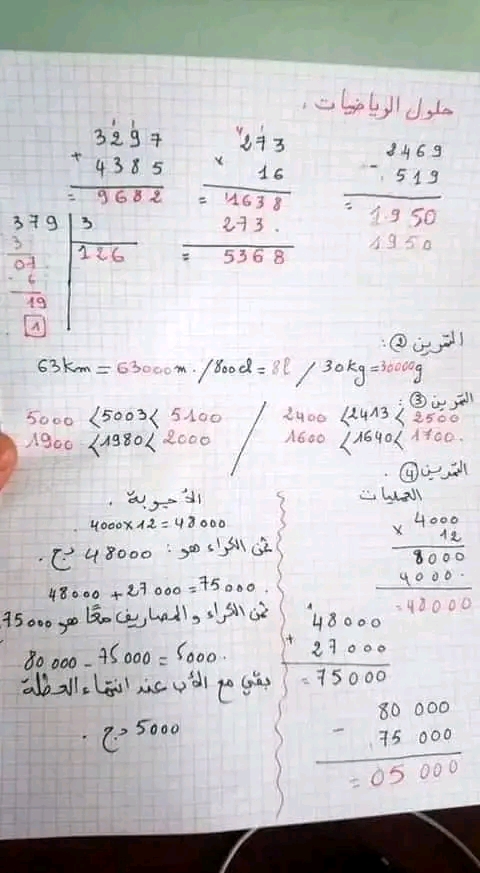 حلول الرياضيات :
3297
+ 4385
= 9682
273
× 16
= 1638
273 .
= 5368
2469
- 519
= 1950
1950
379 | 3
3 | 126
07
6
19
1
التمرين ②:
63km = 63000m. / 800cl = 8l / 30kg = 30000g
التمرين ③:
2400 < 2413 < 2500 / 5000 < 5003 < 5100
1600 < 1640 < 1700. / 1900 < 1980 < 2000
التمرين ④.
العمليات
4000
× 12
8000
4000.
= 48000
48000
+ 27000
= 75000
80 000
- 75 000
= 05 000
الأجوبة.
4000 × 12 = 48000.
ثمن الكراء هو: 48000 دج.
48000 + 27000 = 75000.
ثمن الكراء و المصاريف معًا هو 75000
80 000 - 75 000 = 5000.
بقي مع الأب عند انتهاء العطلة
5000 دج.